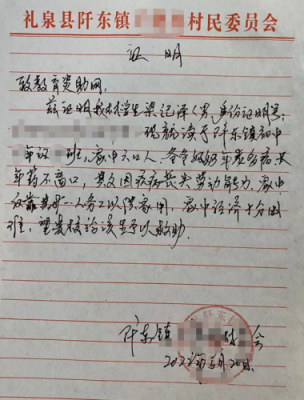 礼泉县阡东镇 村民委员会
证 明
致教育资助网:
兹证明我村学生梁记泽(男,身份证明号:
现就读于阡东镇初中
年级 班,家中六口人,爷爷奶奶年老多病长
年药不离口,其父因疾病丧失劳动能力,家中
仅靠其母一人务工以供家用,家中经济十分困
难,望贵校给该生予以救助。
阡东镇 会
2022年 月 日